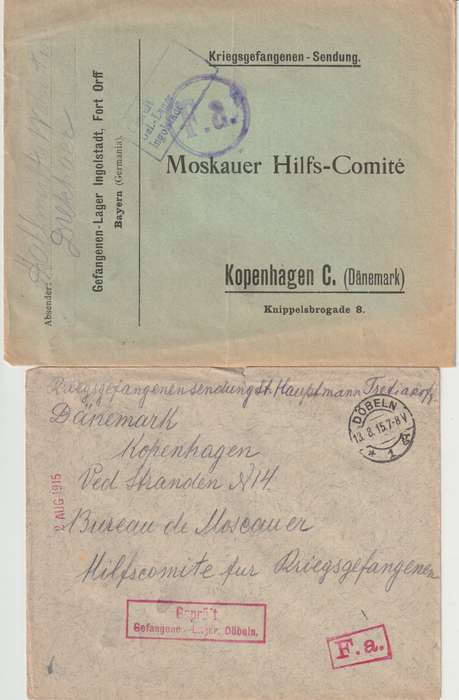 Kriegsgefangenen - Sendung.
F.a.
Gef.-Lager
Ingolstadt
Moskauer Hilfs-Comité
Kopenhagen C. (Dänemark)
Knippelsbrogade 8.
Absender:
Gefangenen-Lager Ingolstadt, Fort Orff
Bayern (Germania).
Kriegsgefangenensendung St. Hauptmann Tretiakoff
Dänemark
Kopenhagen
Ved Stranden N14.
Bureau de Moscauer
Hilfscomite fur Kriegsgefangenen
DÖBELN
13.8.15.7-8V
* 1
2 AUG 1915
Geprüft
Gefangenen-Lager Döbeln.
F.a.